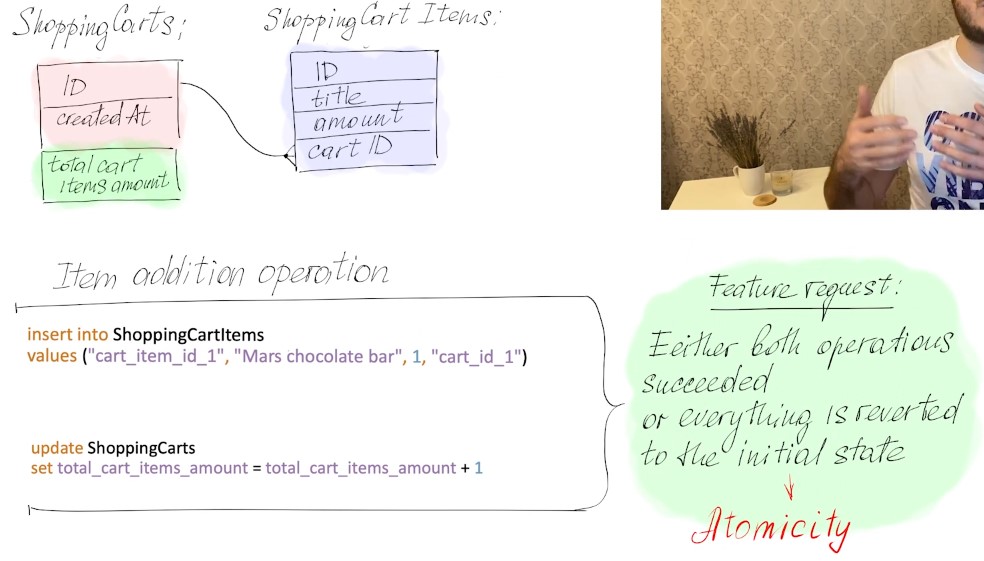 ShoppingCarts:
ShoppingCart Items:
ID
created At
total cart
items amount
ID
title
amount
cart ID
Item addition operation
insert into ShoppingCartItems
values ("cart_item_id_1", "Mars chocolate bar", 1, "cart_id_1")
update ShoppingCarts
set total_cart_items_amount = total_cart_items_amount + 1
Feature request:
Eeither both operations
succeeded
or everything is reverted
to the initial state
Atomicity